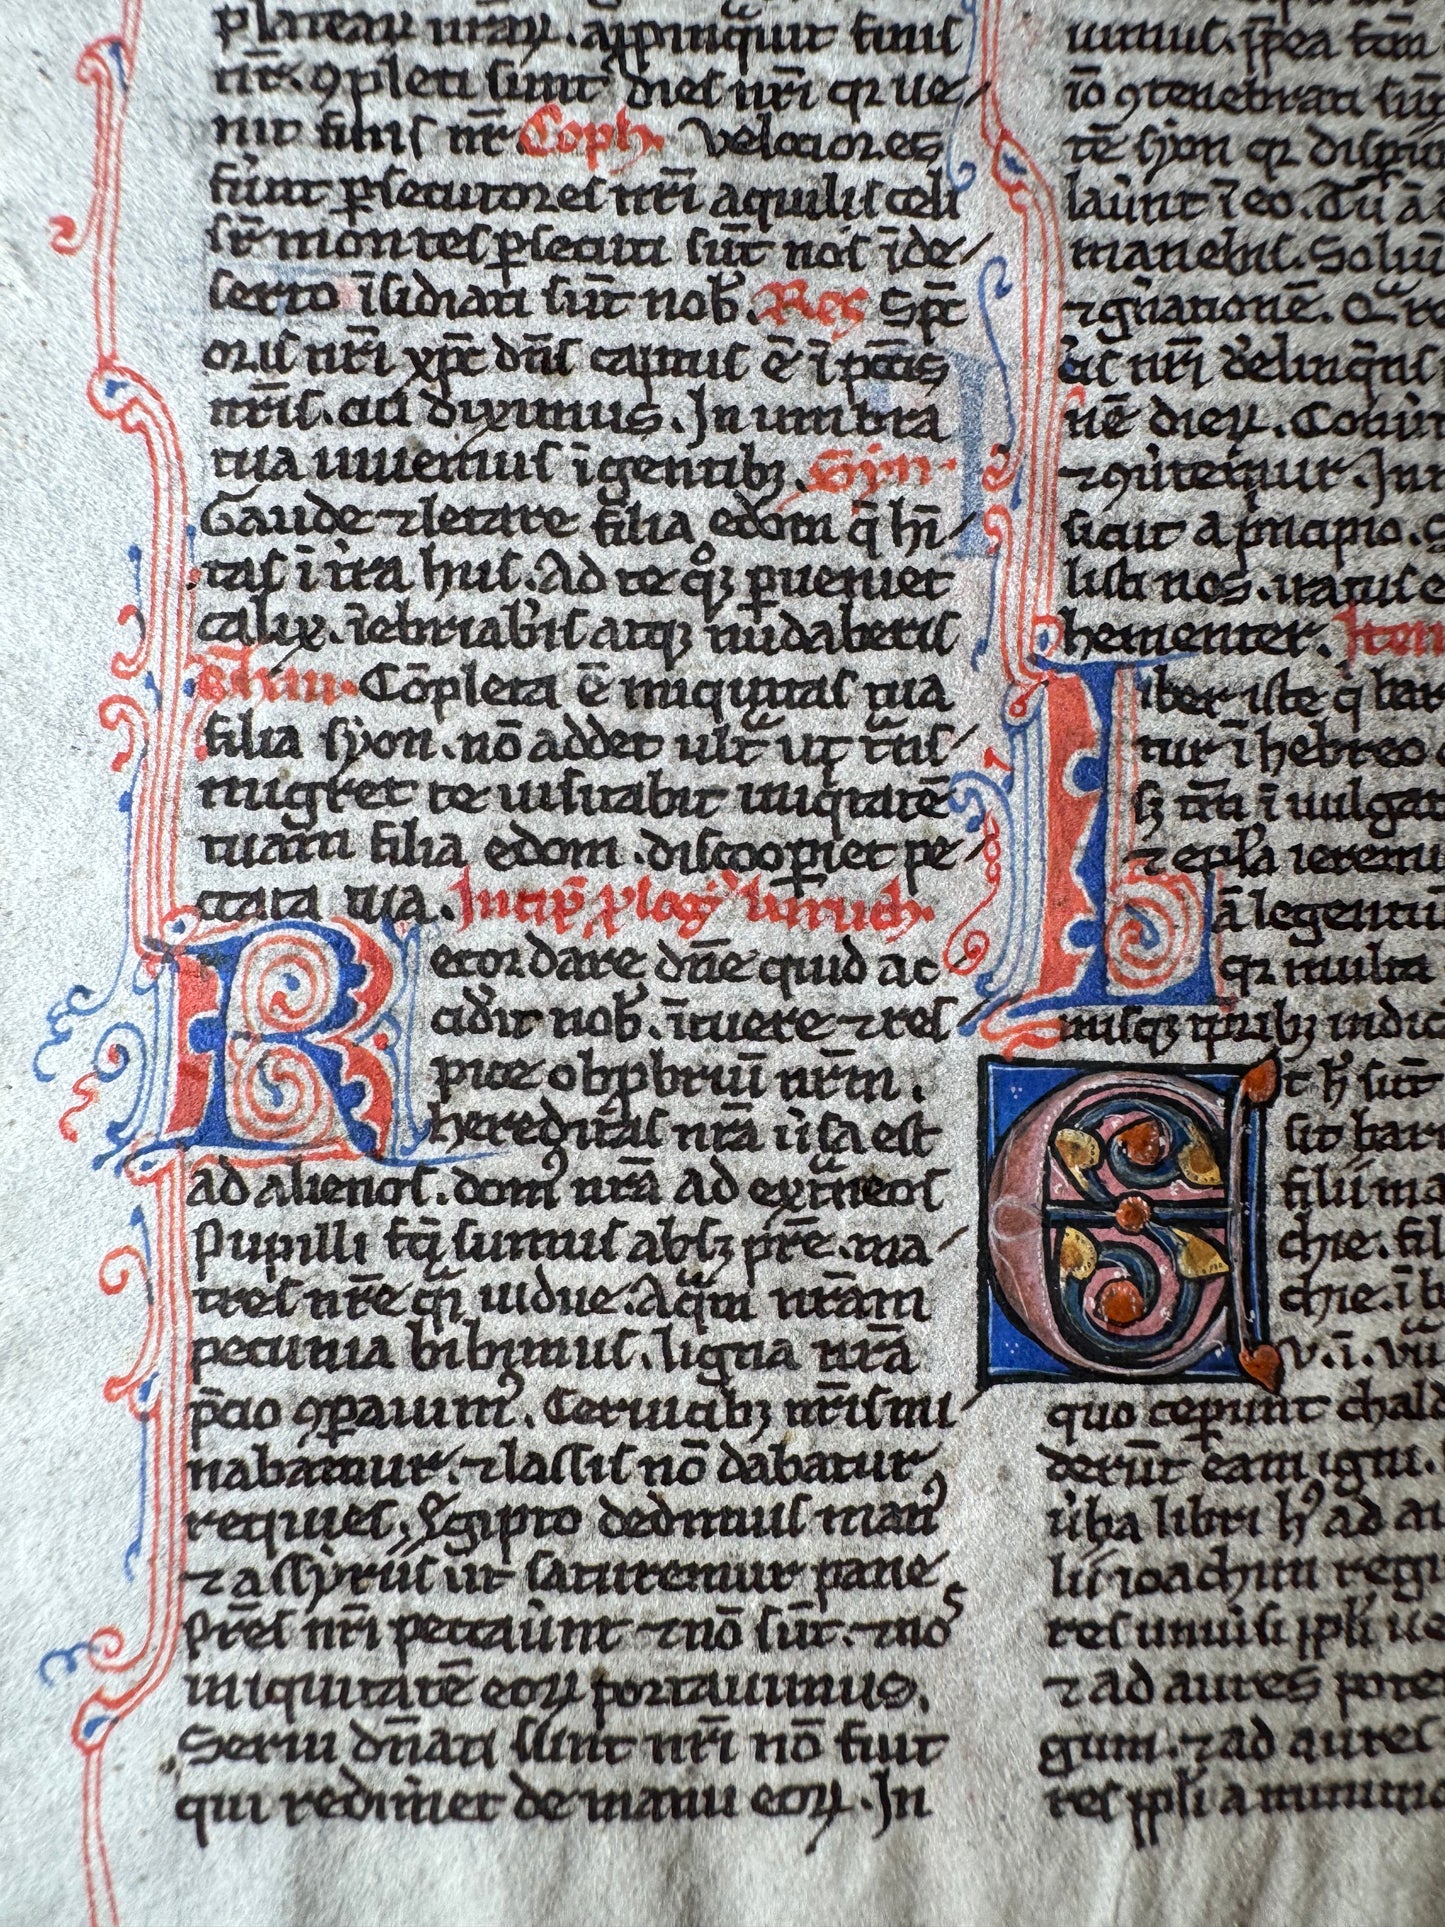 platear᷒ nr̄ar᷒. app̄inquit finis
nr̄. ꝯpleti sunt dies nr̄i qr ue
nit finis nr̄. Coph. Velociores
fuˀnt ꝑsecutores nr̄i aquilis celi
sr̄ montes ꝑsecuti sūt nos ī de
serto īsidiati sūt nob̄. Res Sp̄c
oris nr̄i xp̄c dn̄s captus ē ī pc̄cis
nr̄is. cui diximus. In umbra
tua uiuemus ī gentibꝫ. Syn.
Gaude ⁊ letare filia edom q̄ hī
tas ī tr̄a hus. Ad te qͦqꝫ ꝑueniet
calix. īebriab̄is atqꝫ nudaberis
Thau. Cōpleta ē iniquitas tua
filia syon. nō addet ultᵃ ut tᵃns
migret te uisitabit iniqtatē
tuam filia edom. discooꝑiet pe
ccata tua. Incip̄ ꝓlog᷒ baruch.
Recordare dn̄e quid ac
ciderˀit nob̄. ītuere ⁊ res
pice obꝓbriū nr̄m.
hereditas nr̄a uˀsa est
ad alienos. domꝰ nr̄a ad extᵃneos
Pupilli fc̄i sumus absqꝫ pr̄e. ma
tres nr̄e qᵃi uidue. Aqᵃm nr̄am
pecunia bibimus. ligna nr̄a
p̄cio ꝯꝑauimꝰ. Ceruicibꝫ nr̄is mi
nabamur. ⁊ lassis nō dabatur
requies. Egipto dedimus manꝰ
⁊ assyriis ut saturemur pane
Pr̄es nr̄i peccauˀnt ⁊ nō sūt. ⁊ nos
iniquitatē eoꝝ portauimus.
Serui dn̄ati sunt nr̄i nō fuit
qui redimˀet de manu eoꝝ. In
iō ꝯtenebrati sūt
tē syon qr disp̄iit
lauˀnt ī eo. Tu ā
manebis. Soliū
⁊ gn̄ationē. Qr̄e
cis nr̄i derelinq̄ns
nē dieꝝ. Conuˀt
⁊ ꝯuˀtemur. In
sicut a pⁱncipio.
isti nos. iratus e
hementer. Item
Liber iste q̄ bar
tur ī hebreo
sꝫ tm̄ ī uulgat
⁊ epl̄a ieremi
ā legentiū
qr multa
misqꝫ tꝑibꝫ indic
Et h̄ sūt
sit bar
filii ma
chie. fil
chie. ī b
v. ī. vii
quo ceꝑunt chald
derūt eam igni.
uˀba libri hꝰ ad au
lii ioachim regi
res uniuˀsi ppl̄i ue
⁊ ad aures pote
gum. ⁊ ad aures
res ppl̄i a minimo